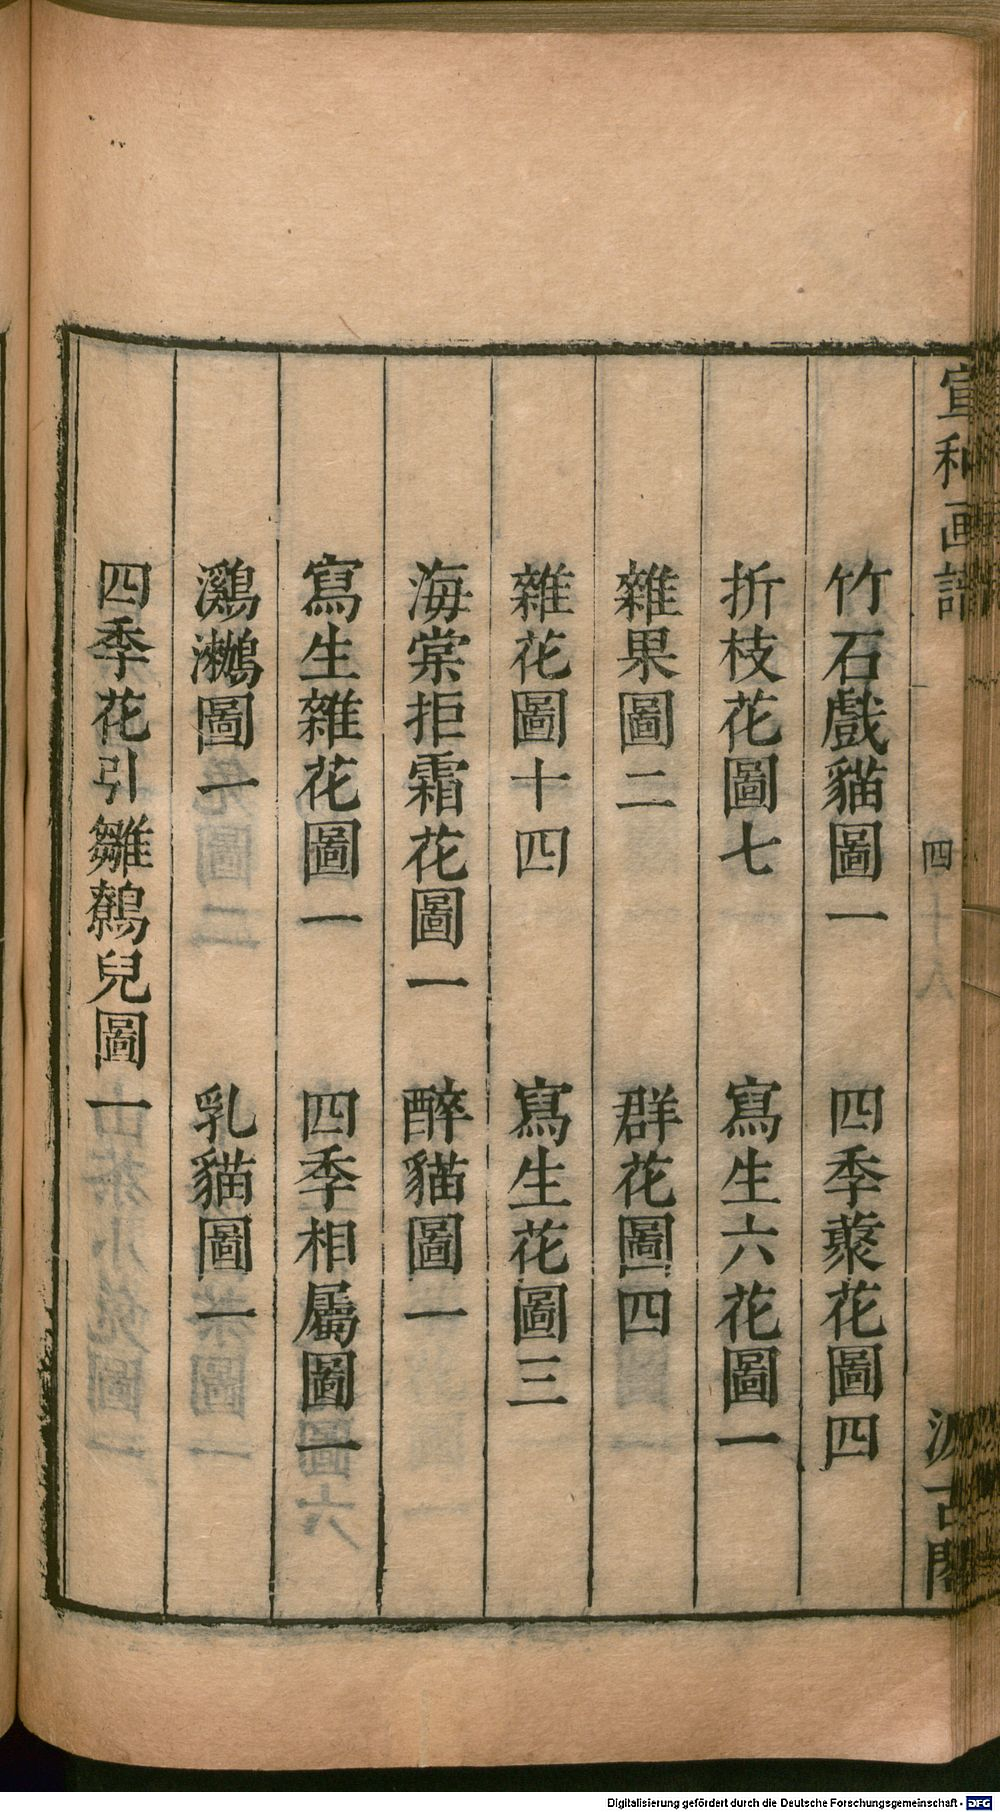 宣和画譜
四
汲古閣
竹石戲貓圖一　四季藂花圖四
折枝花圖七　寫生六花圖一
雜果圖二　群花圖四
雜花圖十四　寫生花圖三
海棠拒霜花圖一　醉貓圖一
寫生雜花圖一　四季相屬圖一
鸂鷘圖一　乳貓圖一
四季花引雛鷯兒圖一
Digitalisierung gefördert durch die Deutsche Forschungsgemeinschaft - DFG